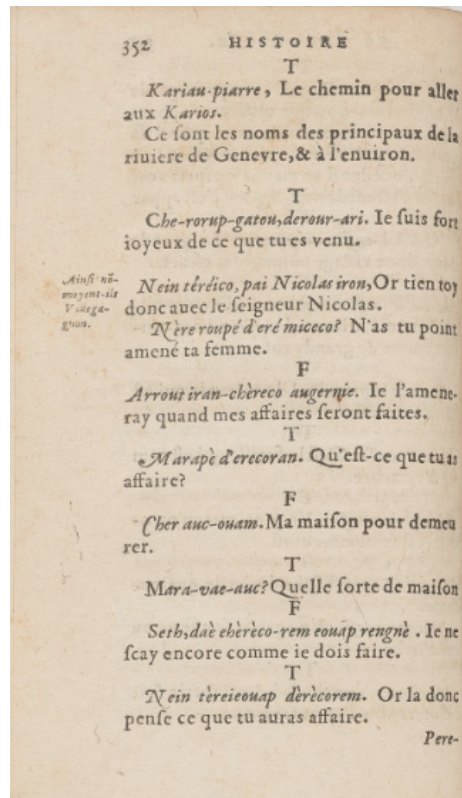 352 HISTOIRE
T
Kariau-piarre, Le chemin pour aller
aux Karios.
Ce ſont les noms des principaux de la
riuiere de Geneure,& à l'enuiron.
T
Che-rorup-gatou,derour-ari. Ie ſuis fort
ioyeux de ce que tu es venu.
Ainſi nō-
moyent-ils
Villega-
gnon.
Nein téréico, pai Nicolas iron,Or tien toy
donc auec le ſeigneur Nicolas.
Nère roupé d'eré miceco? N'as tu point
amené ta femme.
F
Arrout iran-chèreco augernie. Ie l'amene-
ray quand mes affaires ſeront faites.
T
Marapè d'erecoran. Qu'eſt-ce que tu as
affaire?
F
Cher auc-ouam. Ma maiſon pour demeu
rer.
T
Mara-vae-auc? Quelle ſorte de maiſon
F
Seth,daè ehèrèco-rem eouap rengnè. Ie ne
ſcay encore comme ie dois faire.
T
Nein tèreieouap dèrècorem. Or la donc
penſe ce que tu auras affaire.
Pere-